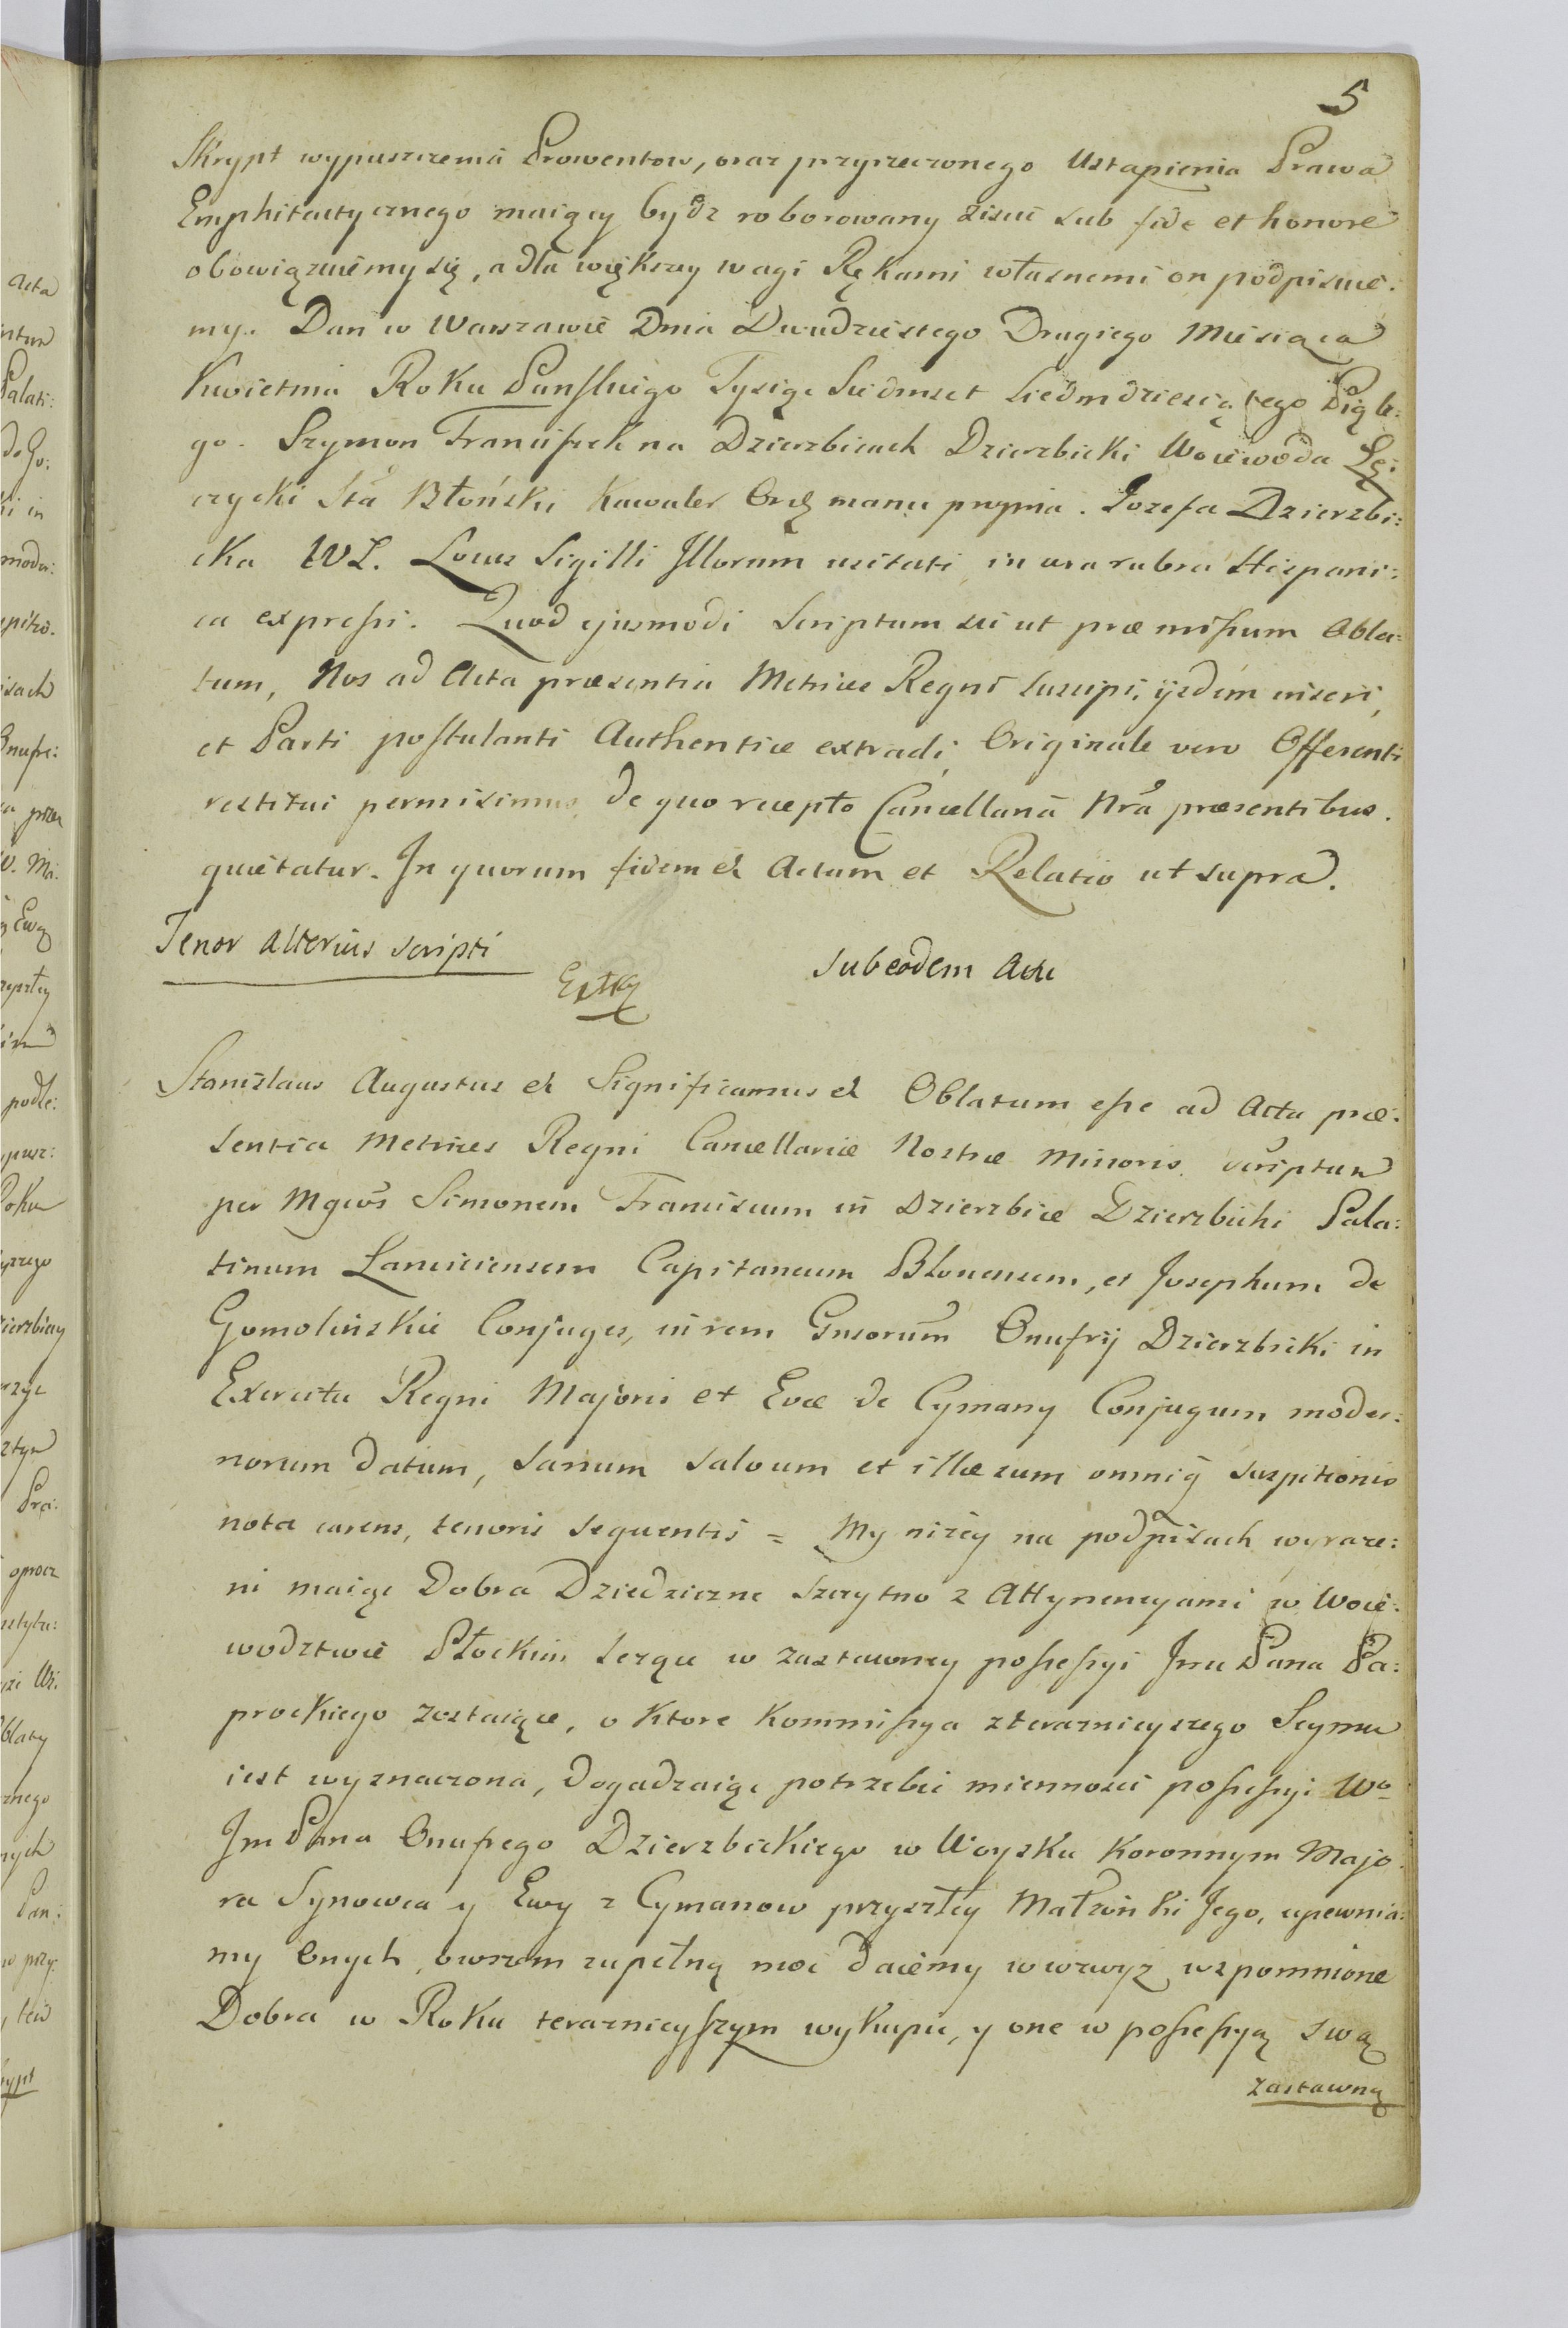 5
Skrypt wypuszczenia Prowentow, oraz przyrzeczonego Ustąpienia Prawa
Emphiteutycznego maiący bydz roborowany ziscić sub fide et honore
obowiązuiemy się, a dla większey wagi Rękami własnemi on podpisuie:
my. Dan w Warszawie Dnia Dwudziestego Drugiego Miesiąca
Kwietnia Roku Panskiego Tysiąc Siedmset Siedmdziesiątego Piąte:
go. Szymon Franciszek na Dzierzbicach Dzierzbicki Woiewoda Łę:
czycki Stta Błoński Kawaler Ord manu propria. Jozefa Dzierzbi:
cka WŁ. Locus Sigilli Illorum usitati in cera rubra Hispani:
ca expressi. Quod ejusmodi Scriptum sic ut præmissum Obla:
tum, Nos ad Acta præsentia Metrices Regni suscipi, ijsdem inseri,
et Parti postulanti Authentice extradi, Originale vero Offerenti
restitui permisimus, de quo recepto Cancellaria Nra præsentibus.
quietatur. In quorum fidem et Actum et Relatio ut supra.
Tenor alterius scripti
Sub eodem Actu
Stanislaus Augustus et Significamus et Oblatum esse ad Acta præ:
sentia Metrices Regni Cancellariæ Nostræ Minoris, scriptum
per Mgcos Simonem Franciscum in Dzierzbice Dzierzbicki Pala:
tinum Lanciciensem Capitaneum Blonensem, et Josepham de
Gomolińskie Conjuges, in rem Gnsorum Onufrij Dzierzbicki in
Exercitu Regni Majoris et Evæ de Cymany Conjugum moder:
norum datum, sanum salvum et illæsum omniq suspitionis
nota carens, tenoris sequentis = My niżey na podpisach wyraże:
ni maiąc Dobra Dziedziczne Szczytno z Attynencyami w Woie:
wodztwie Płockim leżące w zastawney possessyi Jmci Pana Pa:
prockiego zostaiące, o ktore Kommissya z teraznieyszego Seymu
iest wyznaczona, dogadzaiąc potrzebie mienności possessyi Wo
Jm Pana Onufrego Dzierzbickiego w Woysku Koronnym Majo:
ra Synowca y Ewy z Cymanow przyszłey Małżonki Jego, upewnia:
my Onych, owszem zupełną moc daiemy w wzwyż wspomnione
Dobra w Roku teraznieyszym wykupić, y one w possessyą swą
zastawną